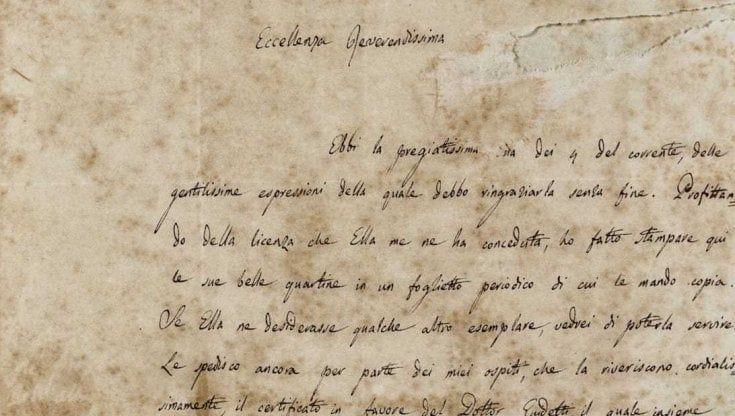 Eccellenza Reverendissima
Ebbi la pregiatissima sua dei 4 del corrente, delle
gentilissime espressioni della quale debbo ringraziarla senza fine. Profittan
do della licenza che Ella me ne ha conceduta, ho fatto stampare qui
le sue belle quartine in un foglietto periodico di cui le mando copia.
Se Ella ne desiderasse qualche altro esemplare, vedrei di poterla servire.
Le spedisco ancora per parte dei miei ospiti, che la riveriscono cordialis
simamente il certificato in favore del Dottor il quale insieme